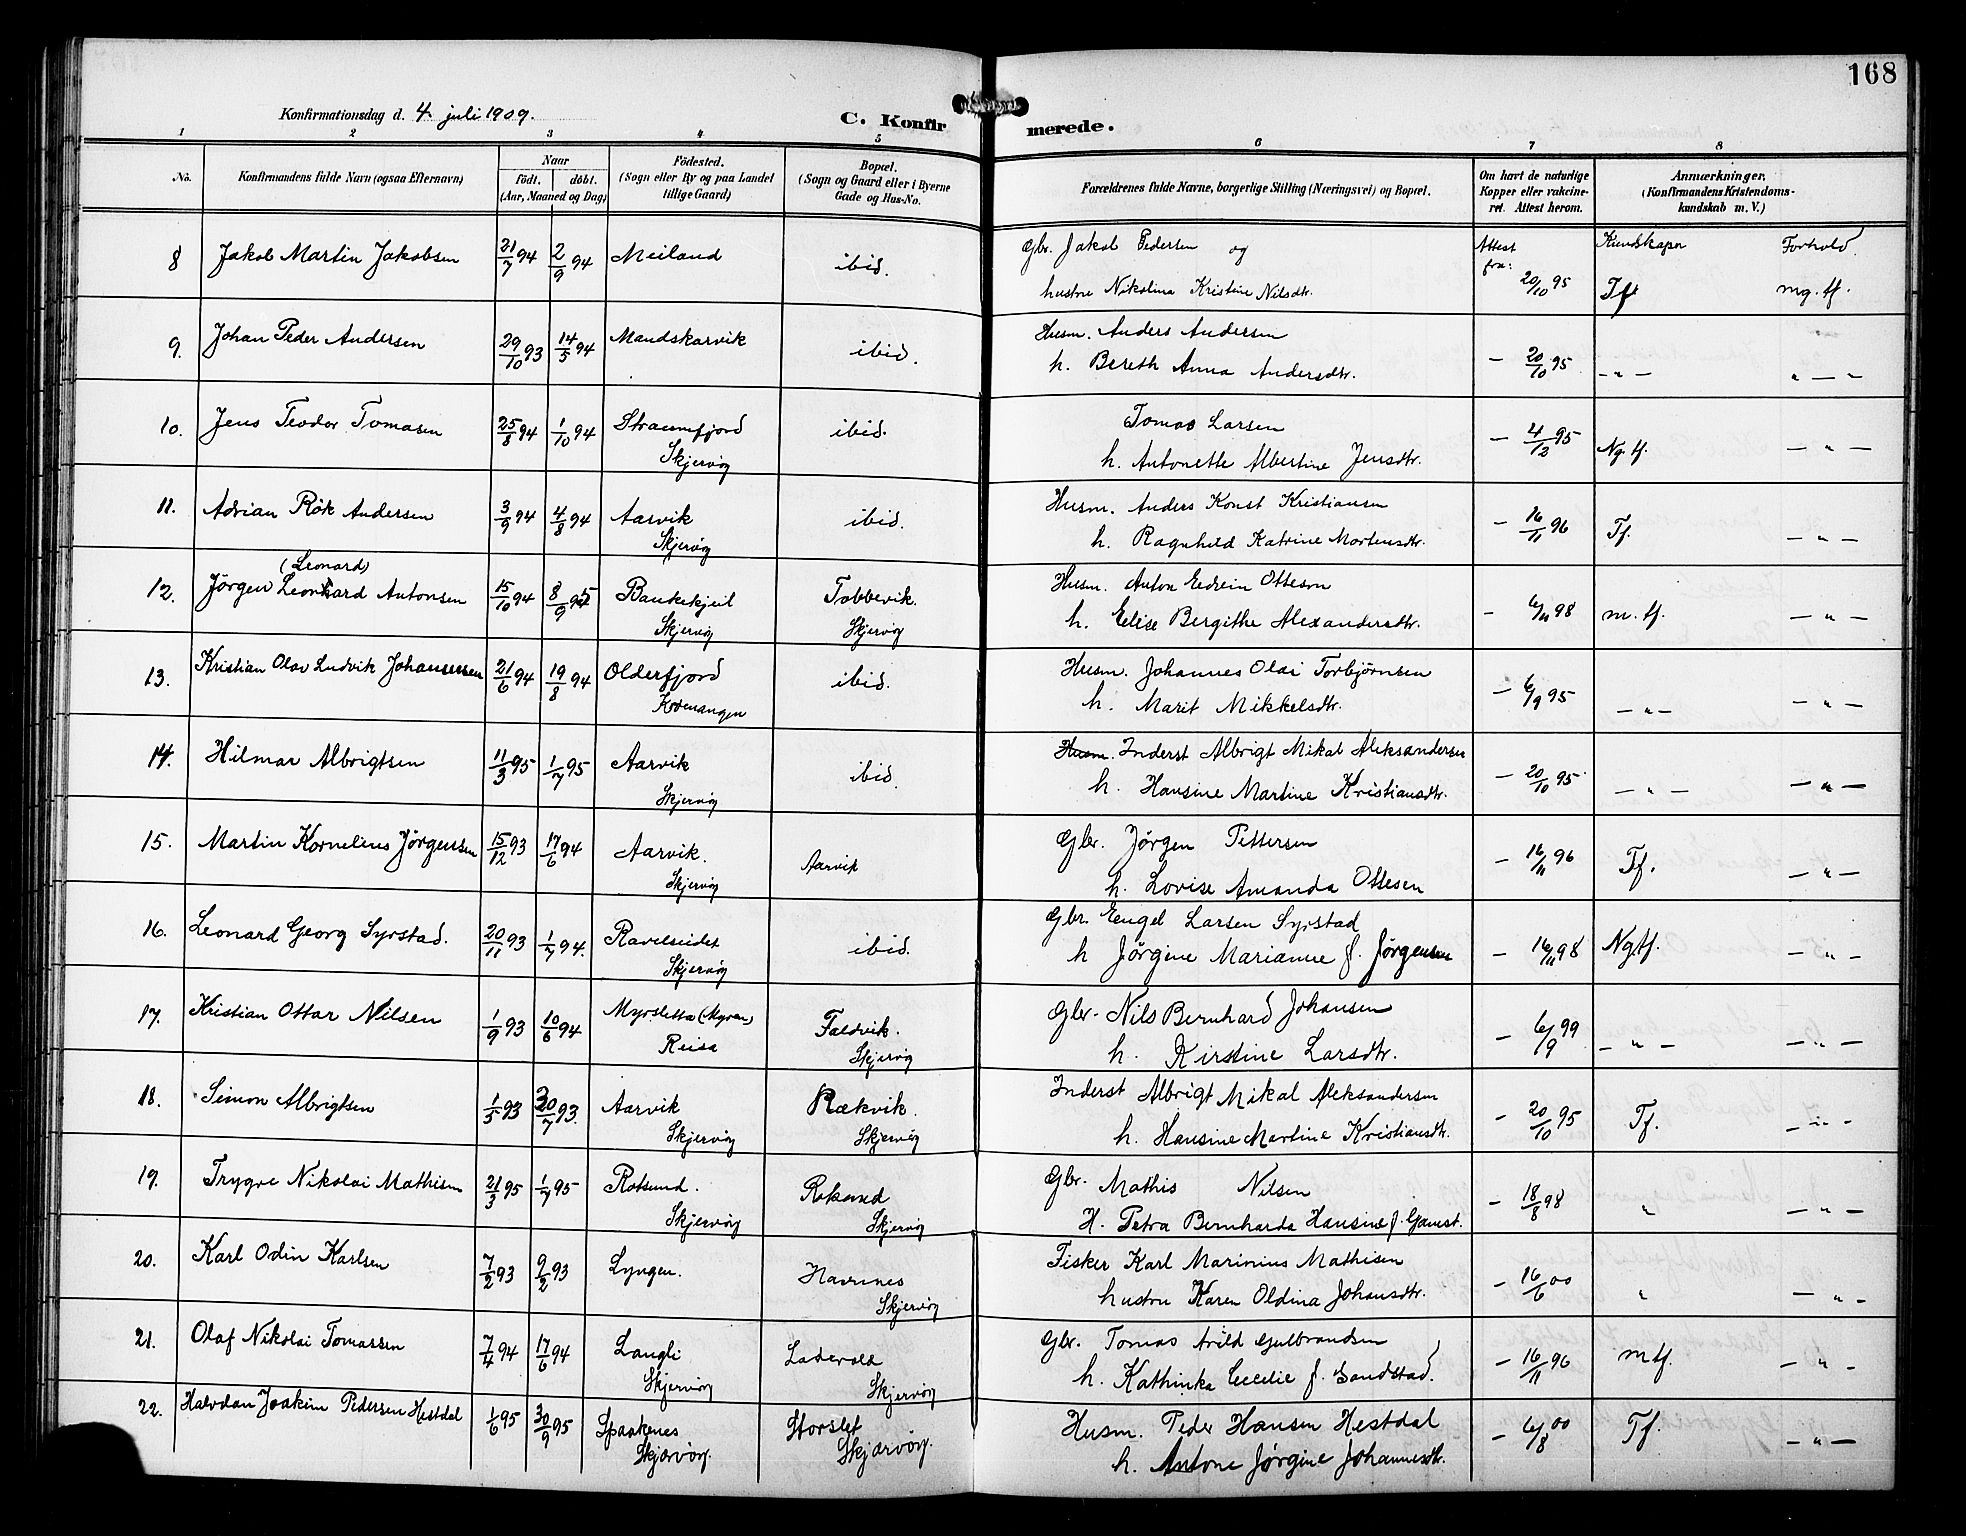 168
Konfirmationsdag d. 4. juli 1909.
C. Konfirmerede.
1 2 3 4 5 6 7 8
No.
Konfirmandens fulde Navn (ogsaa Efternavn)
Naar
födt. döbt.
(Aar, Maaned og Dag)
Födested.
(Sogn eller By og paa Landet
tillige Gaard)
Bopæl.
(Sogn og Gaard eller i Byerne
Gade og Hus-No.
Forældrenes fulde Navne, borgerlige Stilling (Næringsvei) og Bopæl.
Om havt de naturlige
Kopper eller vakcine-
ret. Attest herom.
Anmærkninger.
(Konfirmandens Kristendoms-
kundskab m. V.)
8 Jakob Martin Jakobsen 21/7 94 2/9 94 Meiland ibid. Gbr. Jakob Pedersen og Attest fra: 20/10 95 Kundskaper Forhold.
hustru Nikolina Kristine Nilsdtr. Tf mg. tf.
9. Johan Peder Andersen 29/10 93 14/5 94 Maudskarvik ibid. Husm. Anders Andersen
h. Bereth Anna Andersdtr. — 20/10 95 — " — " — "
10. Jens Teodor Tomasen 25/8 94 1/10 94 Straumfjord ibid. Tomas Larsen
Skjervøy h. Antonette Albertine Jensdtr. — 4/2 95 Ng. tf. — " —
11. Adrian Rök Andersen 3/9 94 4/8 94 Aarvik ibid. Husm. Anders Konst Kristiansen
Skjervøy h. Ragnhild Katrine Mortensdtr. — 16/11 96 Tf. — " —
(Leonard)
12. Jørgen Leonhard Antonsen 15/10 94 8/9 95 Baukekjeil Tobbevik. Husm. Anton Edvin Ottesen
Skjervøy Skjervøy h. Elise Bergithe Alexandersdtr. — 6/11 98 m. tf. — " —
13. Kristian Olav Ludvik Johannesen 21/6 94 19/8 94 Olderfjord ibid. Husm. Johannes Olai Torbjørnsen
Kvænangen h. Marit Mikkelsdtr. — 6/9 95 — " — — " —
14. Hilmar Albrigtsen 11/3 95 1/7 95 Aarvik ibid. Husm. Inderst Albrigt Mikal Aleksandersen
Skjervøy h. Hansine Martine Kristiansdtr. — 20/10 95 — " — — " —
15. Martin Kornelius Jørgensen 15/12 93 17/6 94 Aarvik. Aarvik Gbr. Jørgen Pettersen
Skjervøy h. Lovise Amanda Ottesen — 16/11 96 Tf. — " —
16. Leonard Georg Syrstad. 20/11 93 1/7 94. Ravelseidet ibid. Gbr. Engel Larsen Syrstad
Skjervøy h Jörgine Marianne f. Jørgensen — 16/11 98 Ng.tf. — " —
17. Kristian Ottar Nilsen 1/9 93 10/6 94 Myrsletta (Myren) Faldvik. Gbr. Nils Bernhard Johansen
Reisa Skjervøy h. Kirstine Larsdtr. — 6/9 99 — " — — " —
18. Simon Albrigtsen 1/5 93 30/7 93. Aarvik Rækvik. Inderst Albrigt Mikal Aleksandersen
Skjervøy Skjervøy h. Hansine Martine Kristiansdtr. — 20/10 95 Tf. — " —
19. Trygve Nikolai Mathisen 21/3 95 1/7 95 Rotsund. Rotsund Gbr. Mathis Nilsen
Skjervøy Skjervøy H. Petra Bernharda Hansine f. Gamst. — 18/8 98 " — " —
20. Karl Odin Karlsen 7/2 93 9/2 93 Lyngen. Havnnes Fisker Karl Marinius Mathisen
Skjervøy hustru Karen Oldina Johansdtr. — 16/6 00 " — " —
21. Olaf Nikolai Tomassen 7/4 94 17/6 94 Langli Ladevold Gbr. Tomas Arild Gulbrandsen
Skjervøy Skjervøy h. Kathinka Cecelie f. Sandstad. — 16/11 96 m tf. — " —
22. Halvdan Joakim Pedersen Hestdal 1/6 95 30/9 95 Spaakenes Storslet Husm. Peder Hansen Hestdal
Skjærvøy. Skjærvøy. h. Antone Jørgine Johannesdtr. — 6/8 00 Tf. — " —